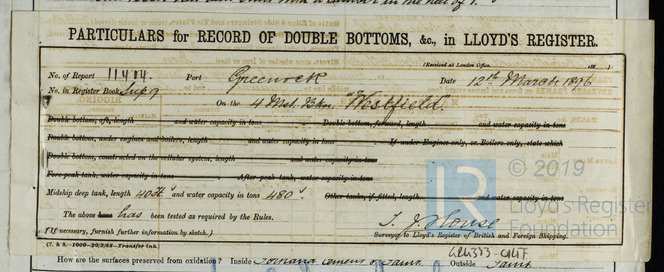 PARTICULARS for RECORD OF DOUBLE BOTTOMS, &c., in LLOYD'S REGISTER.
(Received at London Office, 188 )
No. of Report 11404. Port Greenock Date 12th March 1896
No. in Register Book Sup 9 On the 4 Mst. Bkn. "Westfield".
Double bottom, aft, length and water capacity in tons Double bottom, forward, length and water capacity in tons
Double bottom, under engines and boilers, length and water capacity in tons If under Engines only, or Boilers only, state which
Double bottom, constructed on the cellular system, length and water capacity in tons
Fore peak tank, water capacity in tons After peak tank, water capacity in tons
Midship deep tank, length and water capacity in tons 480 Other tanks, if fitted, length and water capacity in tons
The above has has been tested as required by the Rules.
(If necessary, furnish further information by sketch.)
T. J. House
Surveyor to Lloyd's Register of British and Foreign Shipping.
Transfer Ink.
© 2019
LR
Lloyd's Register
Foundation
How are the surfaces preserved from oxidation? Inside Portland Cement & Paint Outside Paint